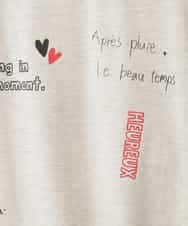 Après pluie,
le beau temps
ng in
moment.
HEUREUX